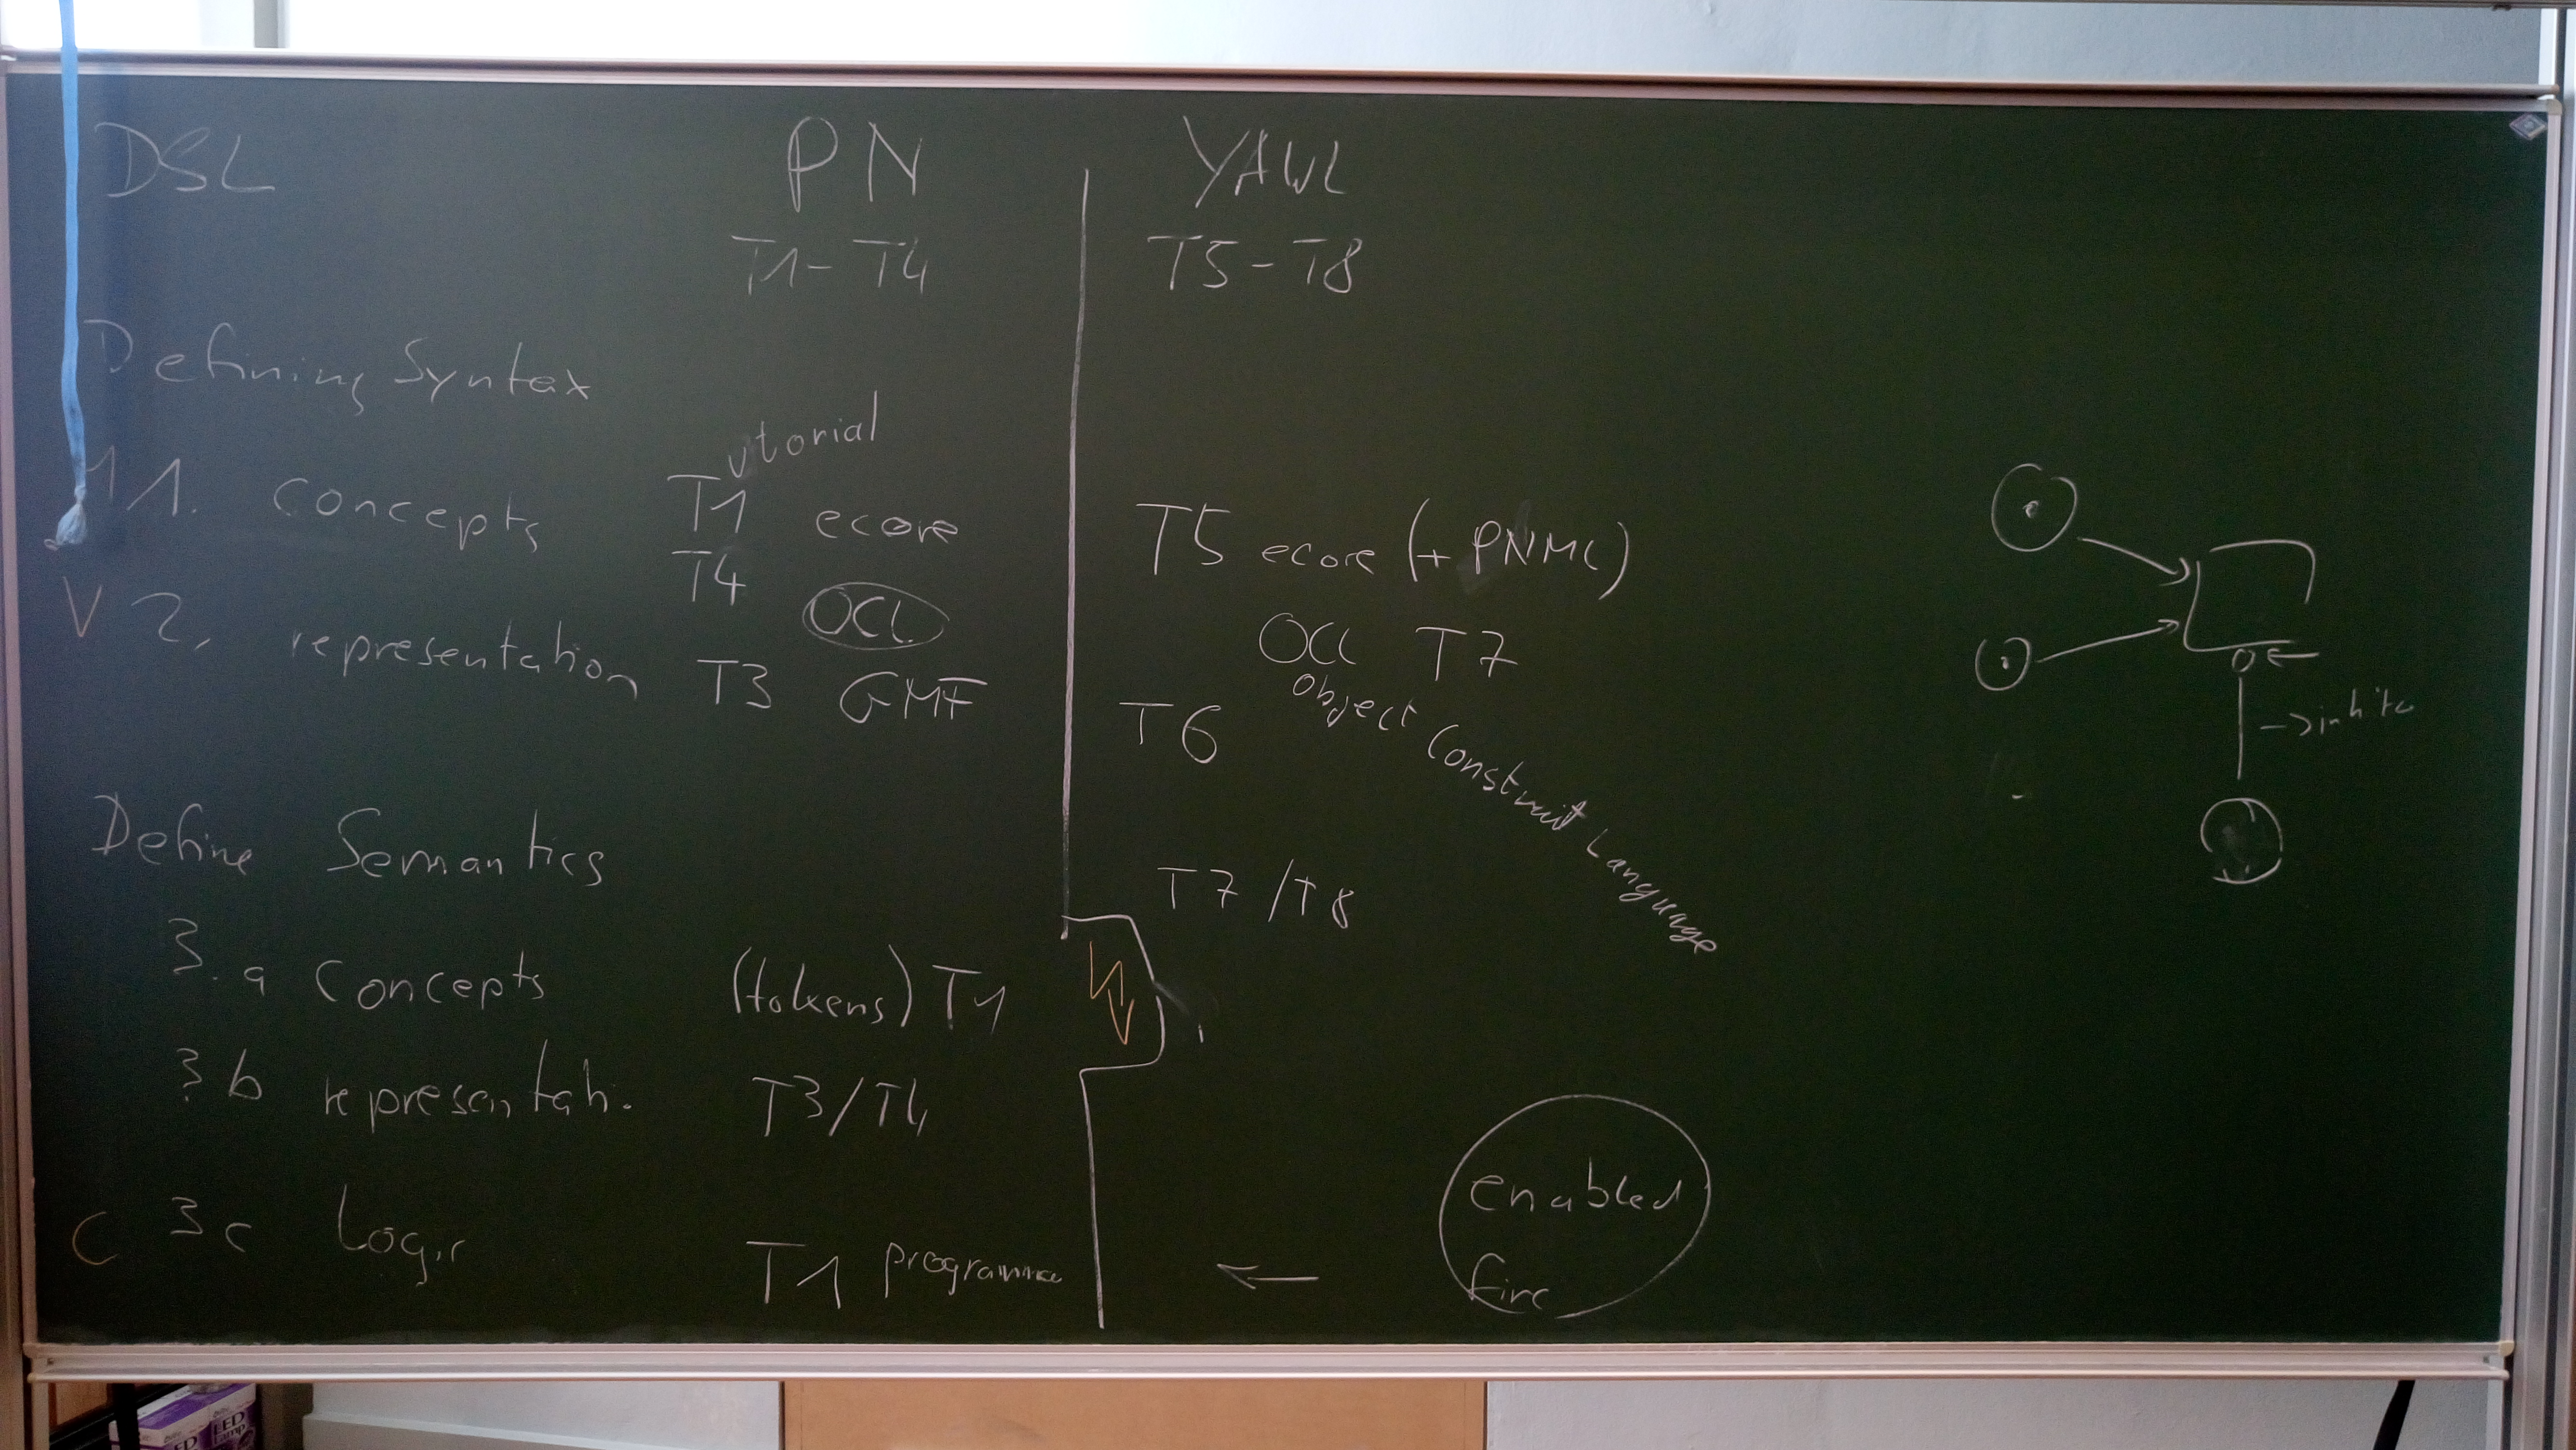 DSL PN YAWL
T1-T4 T5-T8
Defining Syntax
utorial
M 1. concepts T1 ecore T5 ecore (+ PNML)
T4 OCL OCL T7
V 2. representation T3 GMF T6
Object Constraint Language
-> inhib
Define Semantics
T7/T8
3.a Concepts (tokens) T1
3b representati. T3/T4
enabled
C 3c Logic T1 programme
fire
LED
lamp